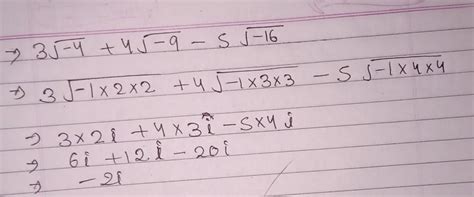 → 3√-4 + 4√-9 - 5√-16
⇒ 3√-1×2×2 + 4√-1×3×3 - 5√-1×4×4
⇒ 3×2i + 4×3i - 5×4i
⇒ 6i + 12i - 20i
⇒ -2i